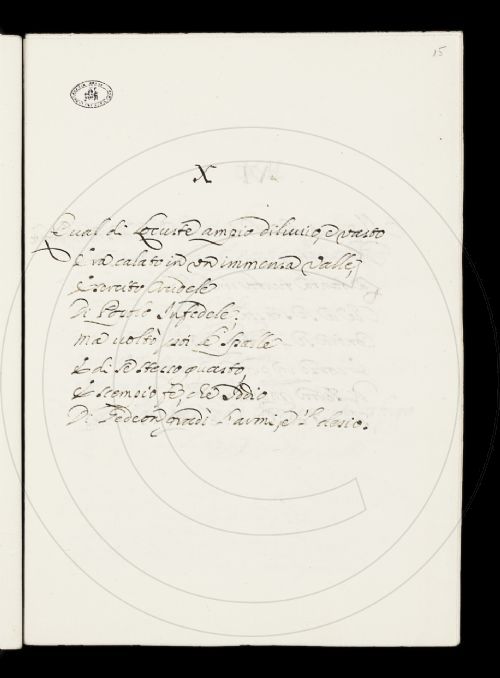 15
X
Qual di Locuste ampio diluuio, e uasto
Era calato in un immensa Valle,
Esercito Crudele
Di Popolo Infedele;
ma uoltò poi le Spalle
E di se stesso guasto,
E scempio fè, che Iddio
Di Gedeon gradì l'armi, e'l desio.